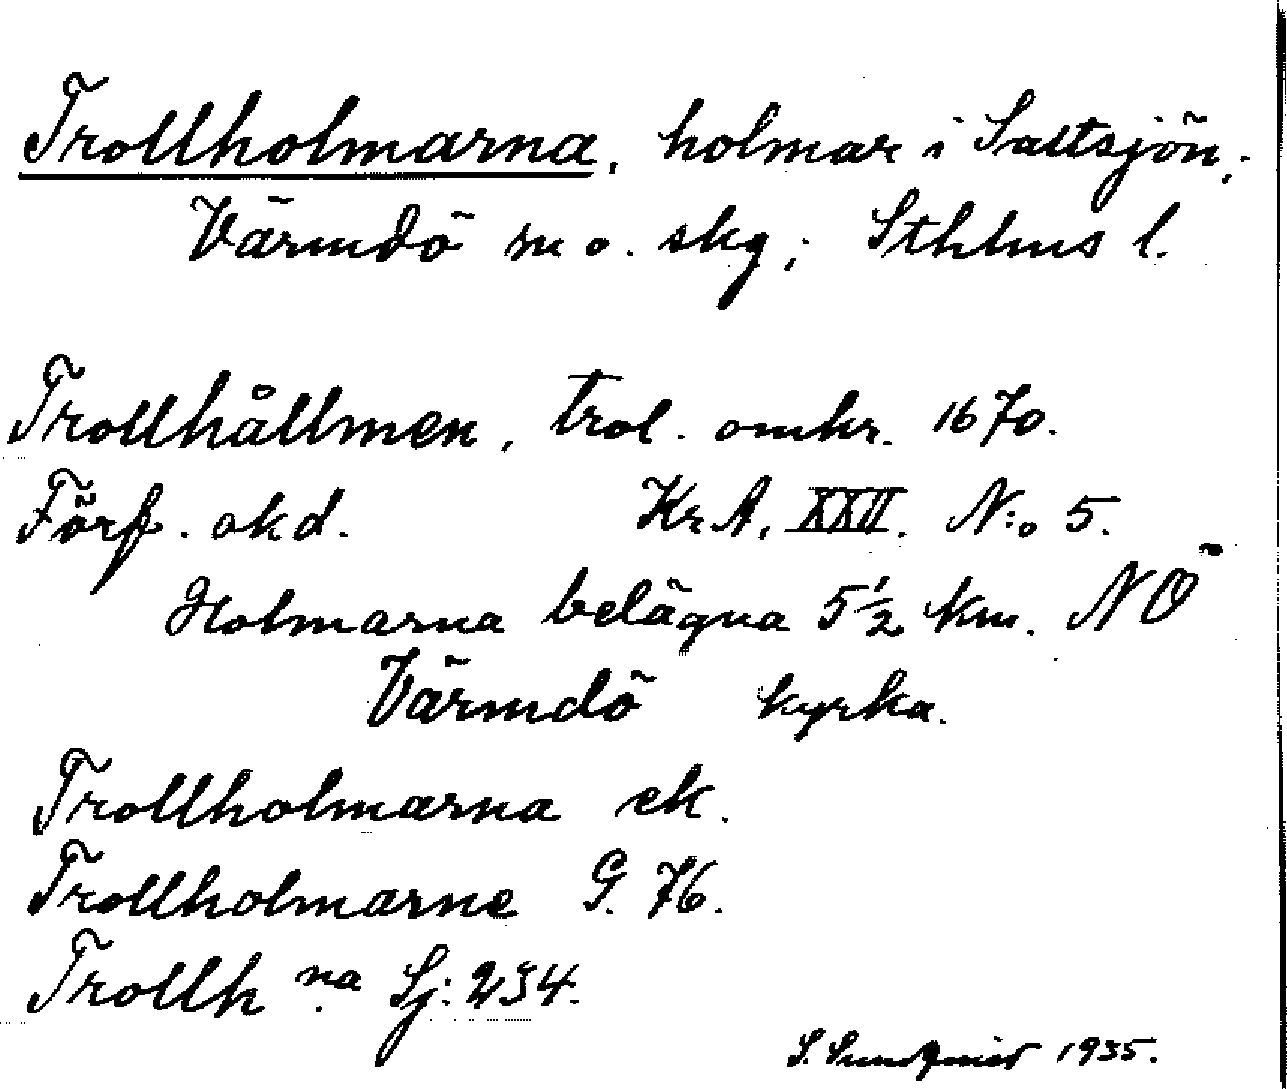 Trollholmarna, holmar i Saltsjön,;
Värmdö sn o. skg; Sthlms l.
Trollhållmen, trol. omkr. 1670.
Förf. okd. KrA, XXII. N:o 5.
Holmarna belägna 5 1/2 km. NÖ
Värmdö kyrka.
Trollholmarna ek.
Trollholmarne G. 76.
Trollh na Sj: 234.
S. Sundqvist 1935.